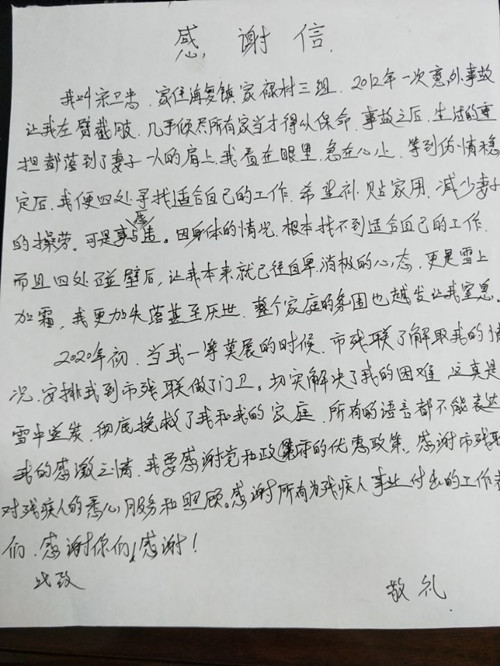 感谢信
我叫宋卫岗、家住海复镇家禄村三组、2012年一次意外事故
让我左臂截肢、几乎倾尽所有家当才得以保命、事故之后、生活的重
担都落到了妻子一人的肩上、我看在眼里、急在心上、等到伤情稳
定后、我便四处寻找适合自己的工作、希望补贴家用、减少妻子
的操劳、可是事与愿违。因身体的情况、根本找不到适合自己的工作、
而且四处碰壁后、让我本来就已往自卑、消极的心态、更是雪上
加霜、我更加失落甚至厌世、整个家庭的氛围也越发让我窒息、
2020年初、当我一筹莫展的时候、市残联了解取我的情
况、安排我到市残联做了门卫。切实解决了我的困难、这真是
雪中送炭、彻底挽救了我和我的家庭、所有的语言都不能表达
我的感激之情、我要感谢党和政府的优惠政策、感谢市残联
对残疾人的悉心服务和照顾。感谢所有为残疾人事业付出的工作者
们、感谢你们、感谢！
此致
敬礼